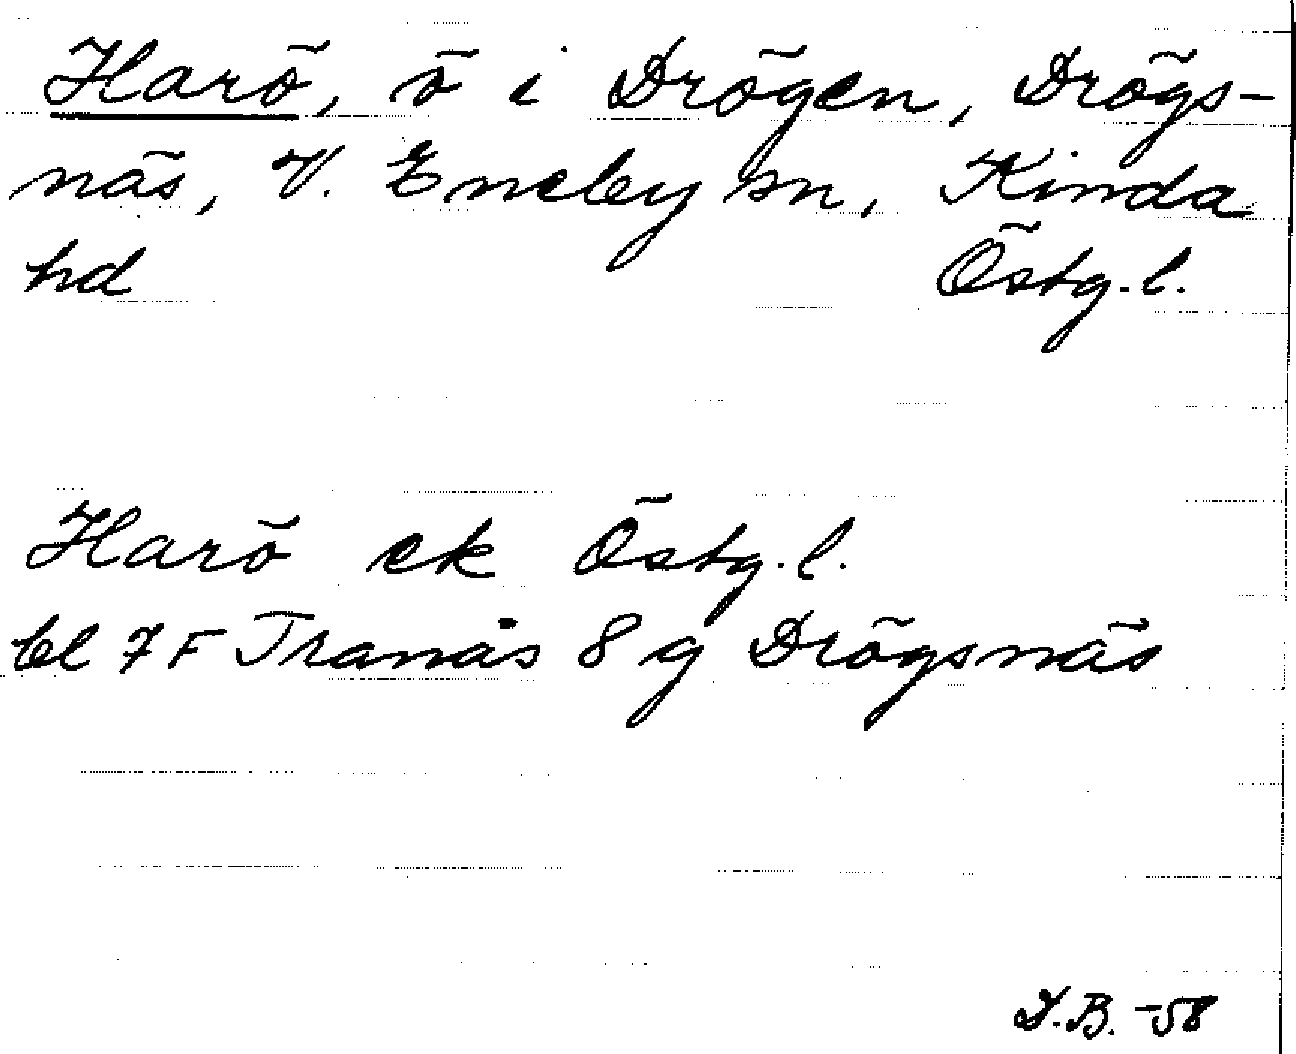 Harö, ö i Drögen, Drögs-
näs, V. Eneby sn, Kinda
hd Östg.l.
Harö ek Östg.l.
bl 7F Tranås 8 g Drögsnäs
I.B. -58